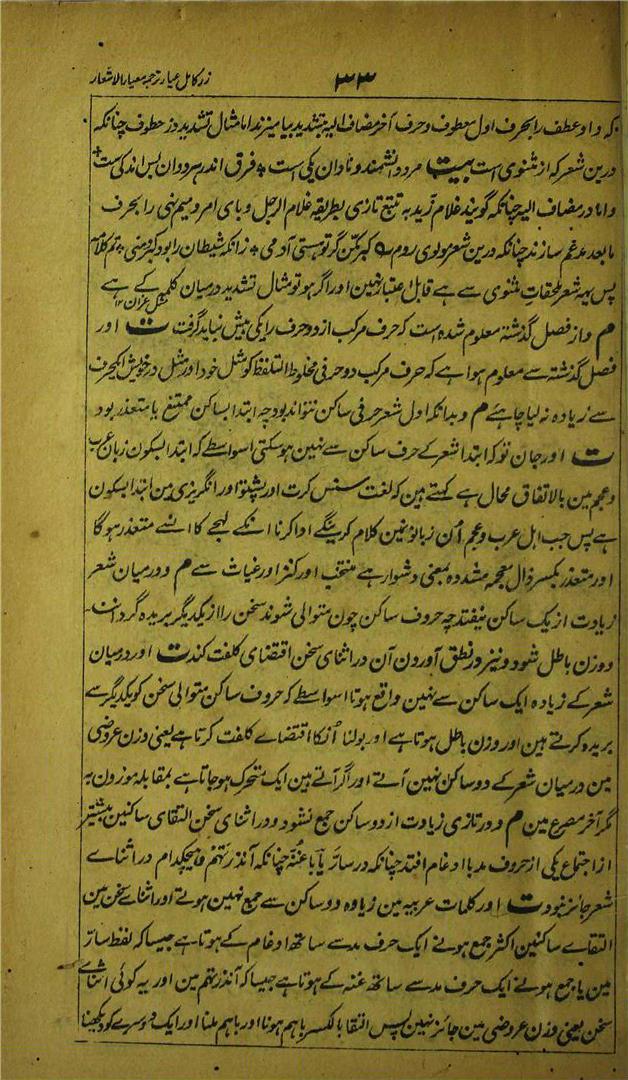 زر کامل عیار ترجمہ معیار الاشعار
۳۳
کہ واو عطف را بحرف اول معطوف و حرف آخر مضاف الیہ بتشدید بیامیزند اما مثال تشدید در عطوف چنانکہ
درین شعر کہ از مثنوی است بیت مرد دانشمند و نادان یکی است ٭ فرق اندر ہر دوان بس اندکی ست
واما در مضاف الیہ چنانکہ گویند غلام زید بہ تتبع تازی بطریقہ غلام الرجل و بای امر و میم نہی را بحرف
ما بعد مدغم سازند چنانکہ درین شعر مولوی روم کبر مکن گر تو ہستی آدمی ٭ زانکہ شیطان را بود کبر و منی ٭ تم کلامہ
پس یہہ شعر ملحقات مثنوی سے ہے قابل اعتبار نہین اور اگر ہو تو مثال تشدید درمیان کلمہ کے ہے
م و از فصل گذشتہ معلوم شدہ است کہ حرف مرکب از دو حرف را یکی بیش نباید گرفت ت اور
فصل گذشتہ سے معلوم ہوا ہے کہ حرف مرکب دو حرفی مخلوط التلفظ کو مثل خود اور مثل در خویش ایک حرف
سے زیادہ نہ لیا چاہئے م و بدانکہ اول شعر حرفی ساکن نتواند بود چہ ابتدا بساکن ممتنع یا متعذر بود
ت اور جان تو کہ ابتدا شعر کے حرف ساکن سے نہین ہو سکتی اسواسطے کہ ابتدا بسکون زبان عرب
و عجم مین بالاتفاق محال ہے کہتے ہین کہ لغت سنسکرت اور پشتو اور انگریزی مین ابتدا بسکون
ہے پس جب اہل عرب و عجم اُن زبانونمین کلام کرینگے ادا کرنا انکے لہجے کا انسے متعذر ہوگا
اور متعذر بکسر ذال معجمہ مشددہ بمعنی دشوار ہے منتخب اور کنز اور غیاث سے م و درمیان شعر
زیادت از یک ساکن نیفتد چہ حروف ساکن چون متوالی شوند سخن را از یکدیگر بریدہ گرداند
و وزن باطل شود و نیز در نطق آوردن آن در اثنای سخن اقتضای کلفت کند ت اور درمیان
شعر کے زیادہ ایک ساکن سے نہین واقع ہوتا اسواسطے کہ حروف ساکن متوالی سخن کو یکدیگر سے
بریدہ کرتے ہین اور وزن باطل ہوتا ہے اور بولنا اُنکا اقتضاے کلفت کرتا ہے یعنی وزن عروضی
مین درمیان شعر کے دو ساکن نہین آتے اور اگر آتے ہین ایک متحرک ہو جاتا ہے بمقابلہ موزون بہ
مگر آخر مصرع مین م و در تازی زیادت از دو ساکن جمع نشود و در اثنای سخن التقای ساکنین بیشتر
از اجتماع یکی از حروف مد با ادغام افتد چنانکہ در سارّ یا با غنّہ چنانکہ آنذرتہم و ہیچکدام در اثناے
شعر جائز نبود ت اور کلمات عربیہ مین زیادہ دو ساکن سے جمع نہین ہوتے اور اثناے سخن مین
التقاے ساکنین اکثر جمع ہونے ایک حرف مد سے ساتھ ادغام کے ہوتا ہے جیسا کہ لفظ سارّ
مین یا جمع ہونے ایک حرف مد سے ساتھ غنہ کے ہوتا ہے جیسا کہ آنذرتہم مین اور یہ کوئی اثناے
سخن یعنی وزن عروضی مین جائز نہین پس التقا بالکسر باہم ہونا اور باہم ملنا اور ایک دوسرے کو دیکھنا